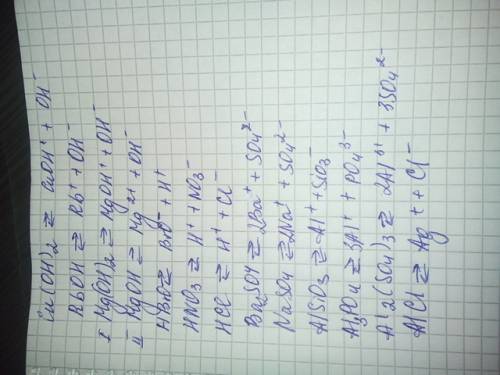 Cu(OH)₂ ⇄ CuOH⁺ + OH⁻
RbOH ⇄ Rb⁺ + OH⁻
I Mg(OH)₂ ⇄ MgOH⁺ + OH⁻
II MgOH ⇄ Mg²⁺ + OH⁻
HBrO ⇄ BrO⁻ + H⁺
HNO₃ ⇄ H⁺ + NO₃⁻
HCl ⇄ H⁺ + Cl⁻
Ba₂SO4 ⇄ 2Ba⁺ + SO4²⁻
NaSO4 ⇄ 2Na⁺ + SO4²⁻
AlSiO₃ ⇄ Al⁺ + SiO₃⁻
A₃PO4 ⇄ 3Al⁺ + PO4³⁻
Al₂(SO4)₃ ⇄ 2Al³⁺ + 3SO4²⁻
AlCl ⇄ Ag⁺ + Cl⁻